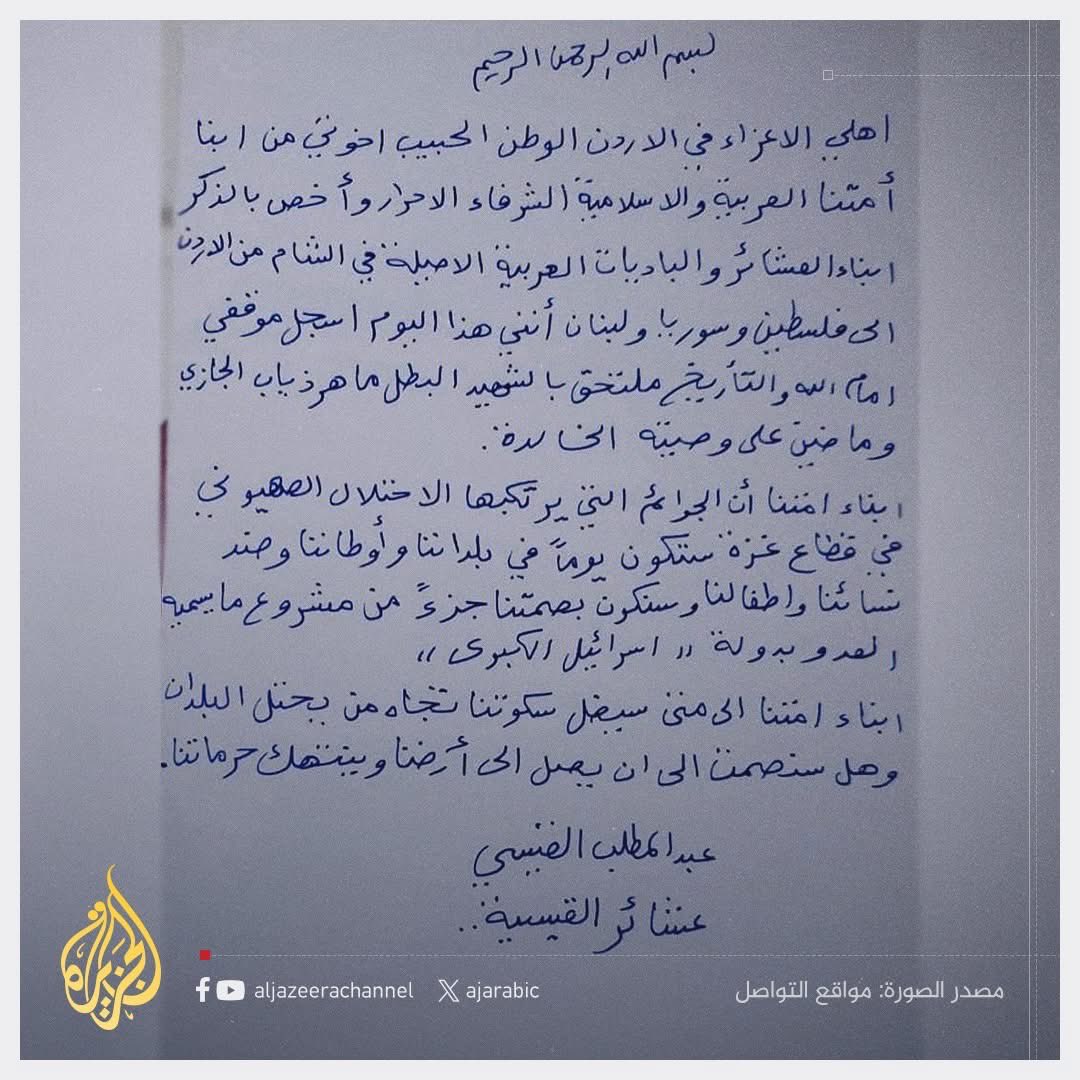 بسم الله الرحمن الرحيم
اهلي الاعزاء في الاردن الوطن الحبيب اخوتي من ابنا
أمتنا العربية والاسلامية الشرفاء الاحرار وأخص بالذكر
ابناء العشائر والباديات العربية الاصيلة في الشام من الاردن
الى فلسطين وسوريا ولبنان أنني هذا اليوم اسجل موقفي
امام الله والتأريخ ملتحق بالشهيد البطل ماهر ذياب الجازي
وماضين على وصيته الخالدة.
ابناء امتنا أن الجرائم التي يرتكبها الاحتلال الصهيوني
في قطاع غزة ستكون يوماً في بلداننا وأوطاننا وضد
نسائنا واطفالنا وسنكون بصمتنا جزءً من مشروع ما يسميه
العدو بدولة ,, اسرائيل الكبرى ,,
ابناء امتنا الى متى سيضل سكوتنا تجاه من يحتل البلدان
وهل سنصمت الى ان يصل الى أرضنا وينتهك حرماتنا.
عبدالمطلب القيسي
عشائر القيسية..
الجزيرة
aljazeerachannel
ajarabic
مصدر الصورة: مواقع التواصل